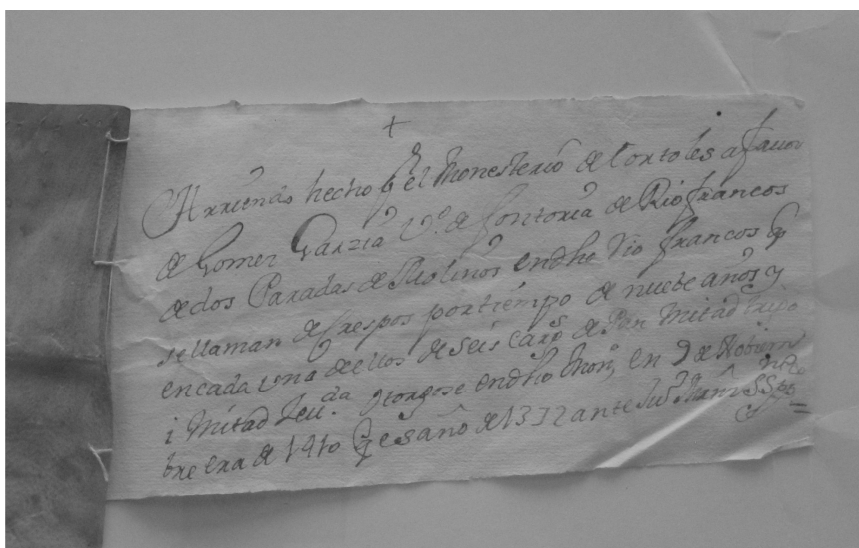 +
Arriendo hecho por el Monesterio de Tortoles a favor
de Gomez Garzia v.º de Hontoria de Rio francos
de dos Paradas de Molinos en dho Rio francos q
se llaman de Crespos por tiempo de nuebe años y
en cada una dellos de seis carg.s de Pan Mitad trigo
i Mitad zeu.da otorgose en dho Mon.º en 9 de Nobiem
bre era de 1410 q es año de 1372 ante Ju.º Marñ SS.no